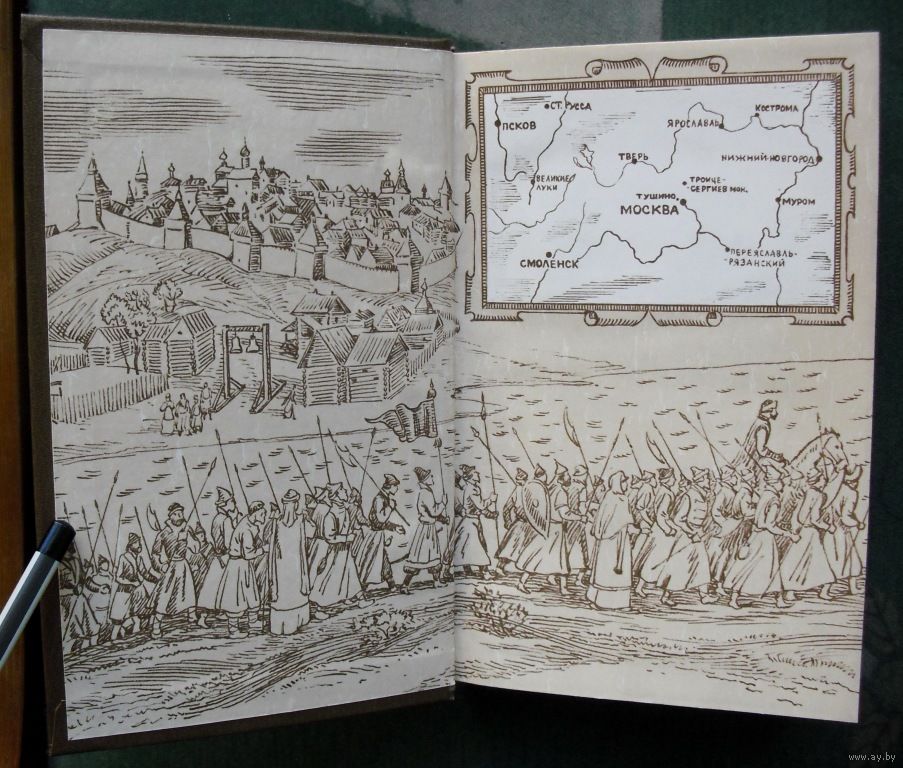 СТ. РУССА
КОСТРОМА
ПСКОВ
ЯРОСЛАВЛЬ
ТВЕРЬ
НИЖНИЙ-НОВГОРОД
ВЕЛИКИЕ
ЛУКИ
ТРОИЦЕ-
-СЕРГИЕВ МОН.
ТУШИНО
МУРОМ
МОСКВА
ПЕРЕЯСЛАВЛЬ-
-РЯЗАНСКИЙ
СМОЛЕНСК
www.ay.by